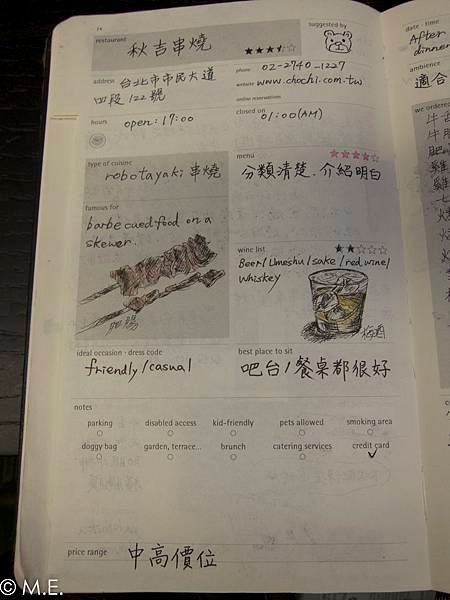 74
restaurant
suggested by
秋吉串燒
★★★⯪☆
address 台北市市民大道
四段122號
phone 02-2740-1227
website www.chochi.com.tw
online reservations
hours
open: 17:00
closed on
01:00(AM)
type of cuisine
robotayaki 串燒
menu ★★★★☆
分類清楚、介紹明白
famous for
barbecued food on a
skewer.
肥腸
wine list ★★☆☆☆
Beer/Umeshu/sake/red wine/
whiskey
梅酒
ideal occasion · dress code
friendly/casual
best place to sit
吧台/餐桌都很好
notes
parking disabled access kid-friendly pets allowed smoking area
doggy bag garden, terrace... brunch catering services credit card
✓
price range 中高價位
date · time
After
dinner
ambience
適合
we ordered
© M.E.